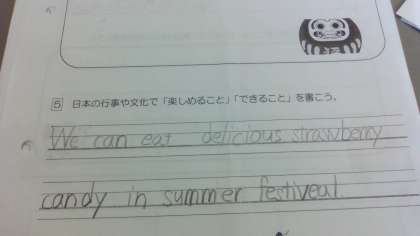 5 日本の行事や文化で「楽しめること」「できること」を書こう。
We can eat delicious strawberry
candy in summer festiveal.